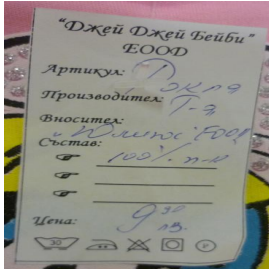 "Джей Джей Бейби"
ЕООД
Артикул:
Производител: Т-я
Вносител:
"Юлиюс" ЕООД
Състав:
100% п-к
Цена: 9 30
лв.
30 P